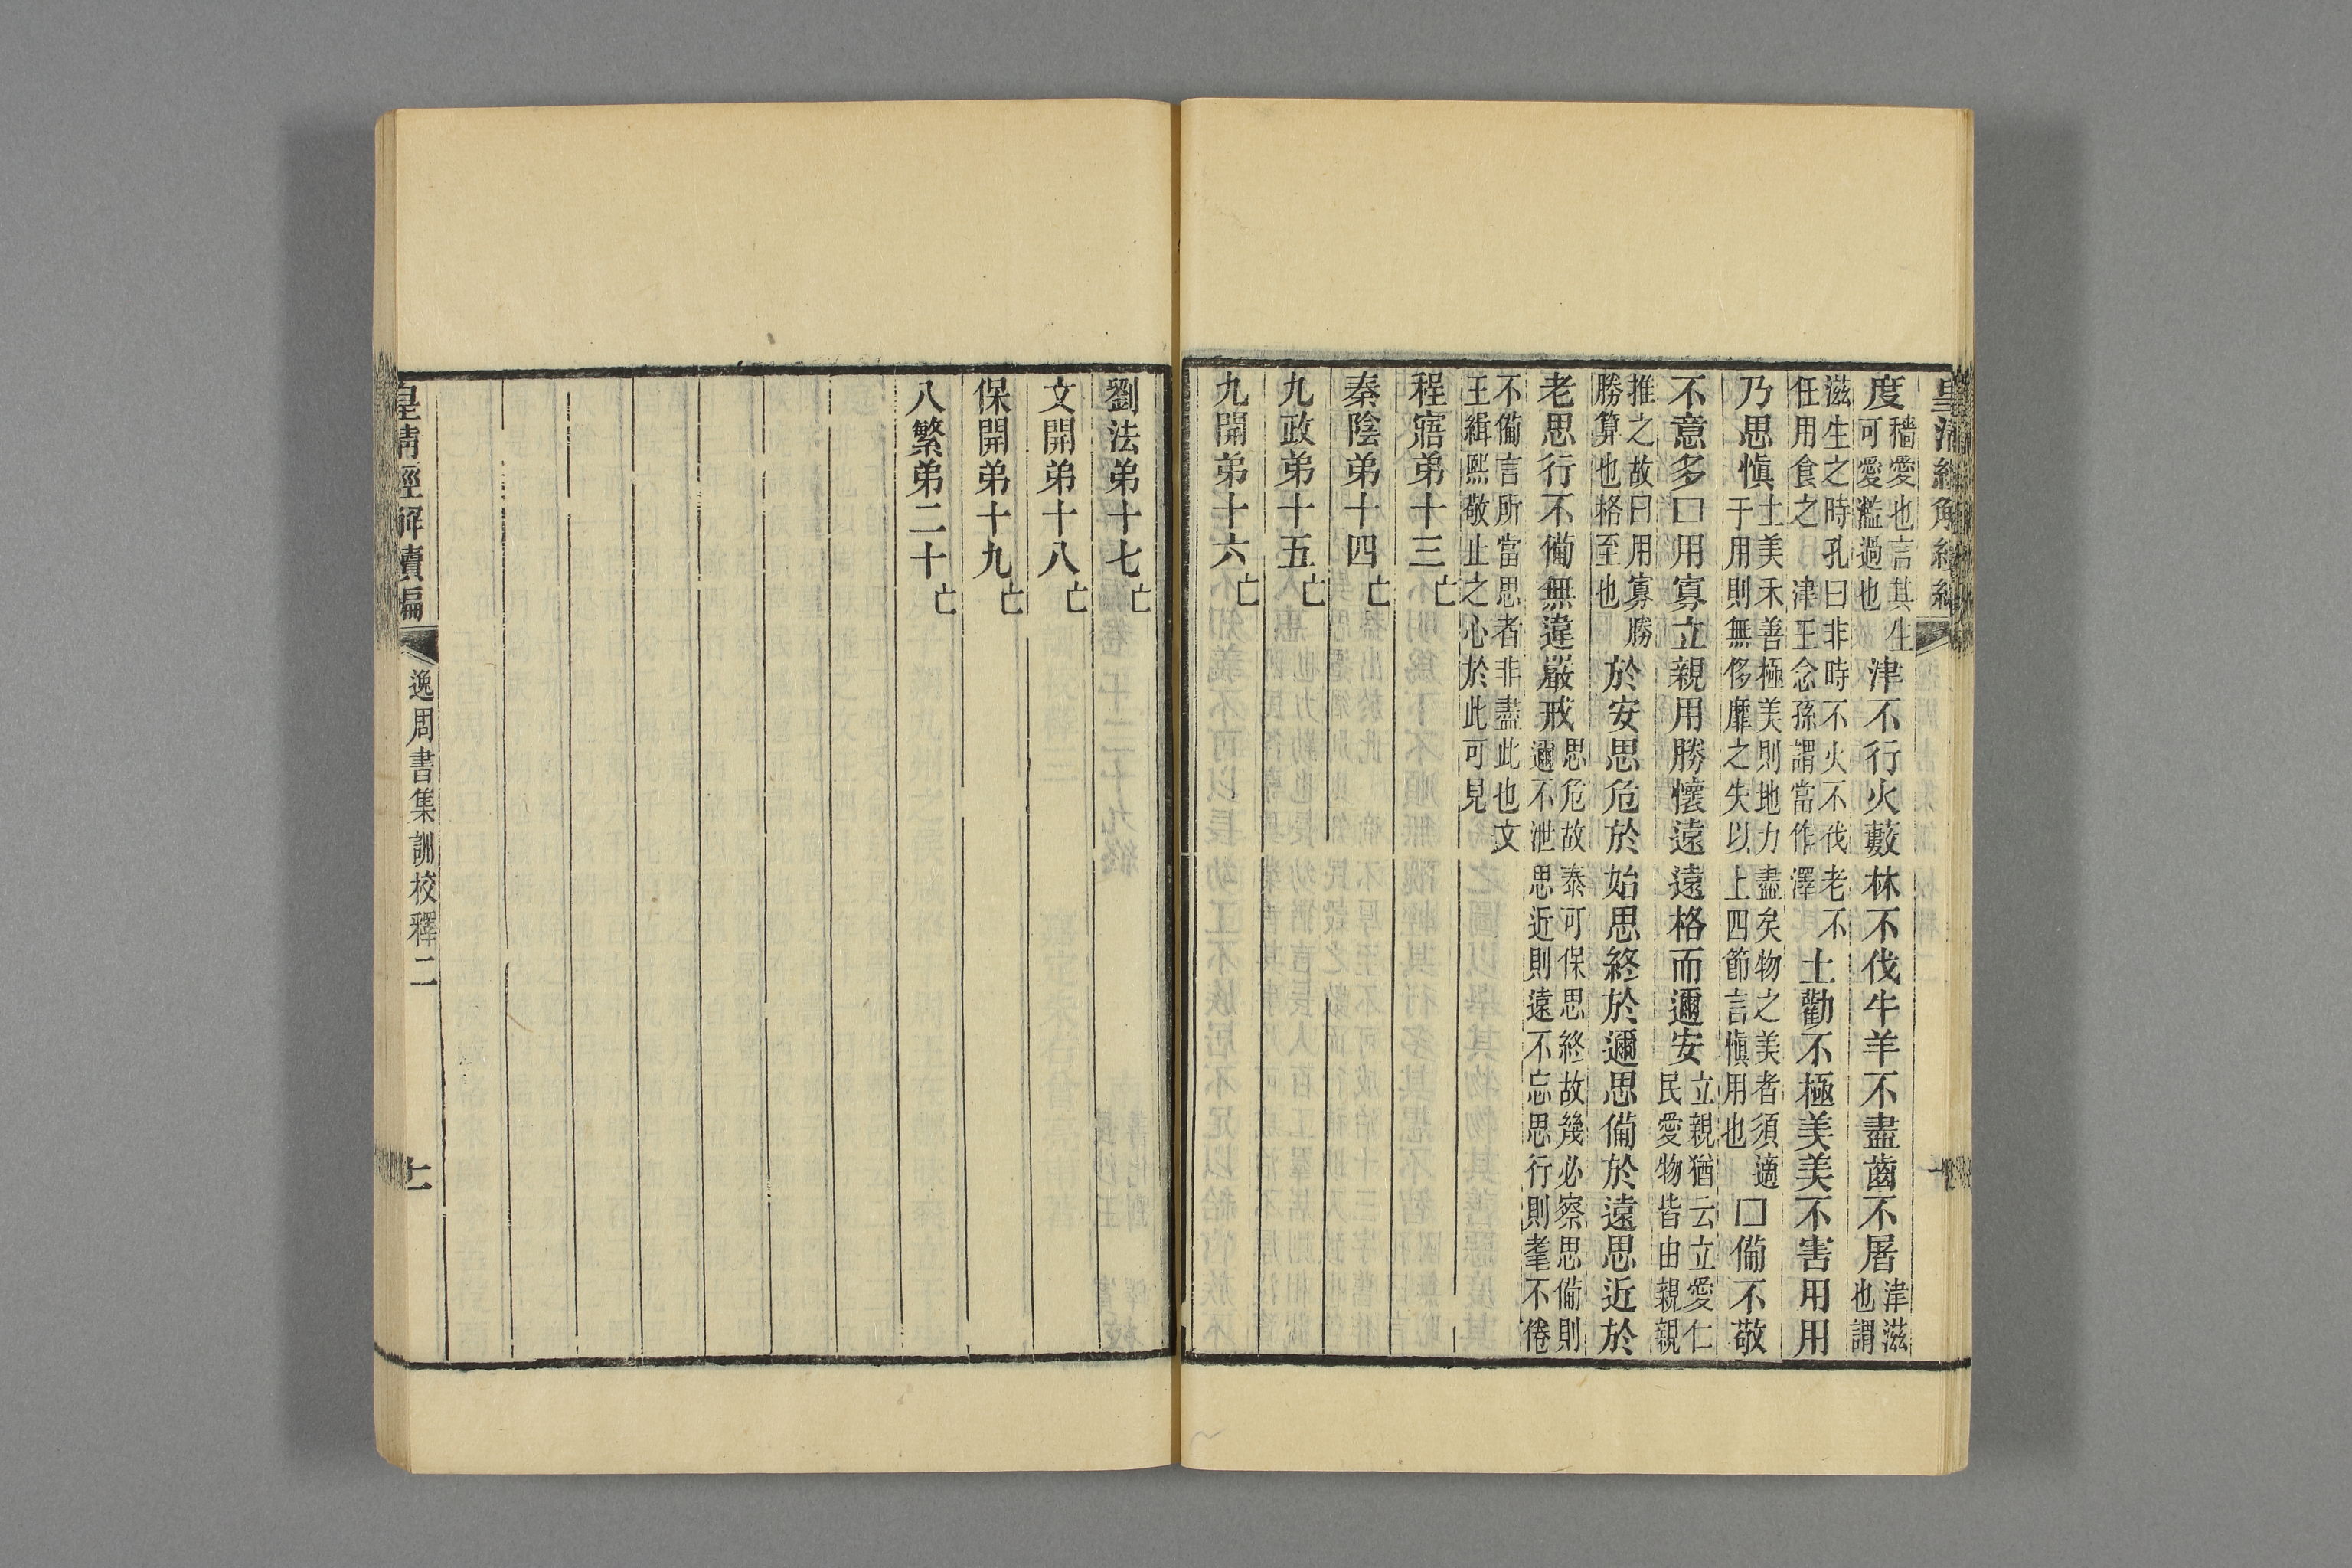 度穡愛也言其生可愛濫過也津不行火藪林不伐牛羊不盡齒不屠津滋也謂
滋生之時孔曰非時不火不伐老不任用食之津王念孫謂當作澤土勸不極美美不害用用
乃思愼土美禾善極美則地力盡矣物之美者須適于用則無侈靡之失以上四節言愼用也□備不敬
不意多□用寡立親用勝懷遠遠格而邇安立親猶云立愛仁民愛物皆由親親
推之故曰用寡勝勝算也格至也於安思危於始思終於邇思備於遠思近於
老思行不備無違嚴戒思危故邇不泄泰可保思終故幾必察思備則思近則遠不忘思行則耄不倦
不備言所當思者非盡此也文王緝熙敬止之心於此可見
程寤弟十三亡
秦陰弟十四亡
九政弟十五亡
九開弟十六亡
劉法弟十七亡
文開弟十八亡
保開弟十九亡
八繁弟二十亡
皇清經解續編
逸周書集訓校釋二